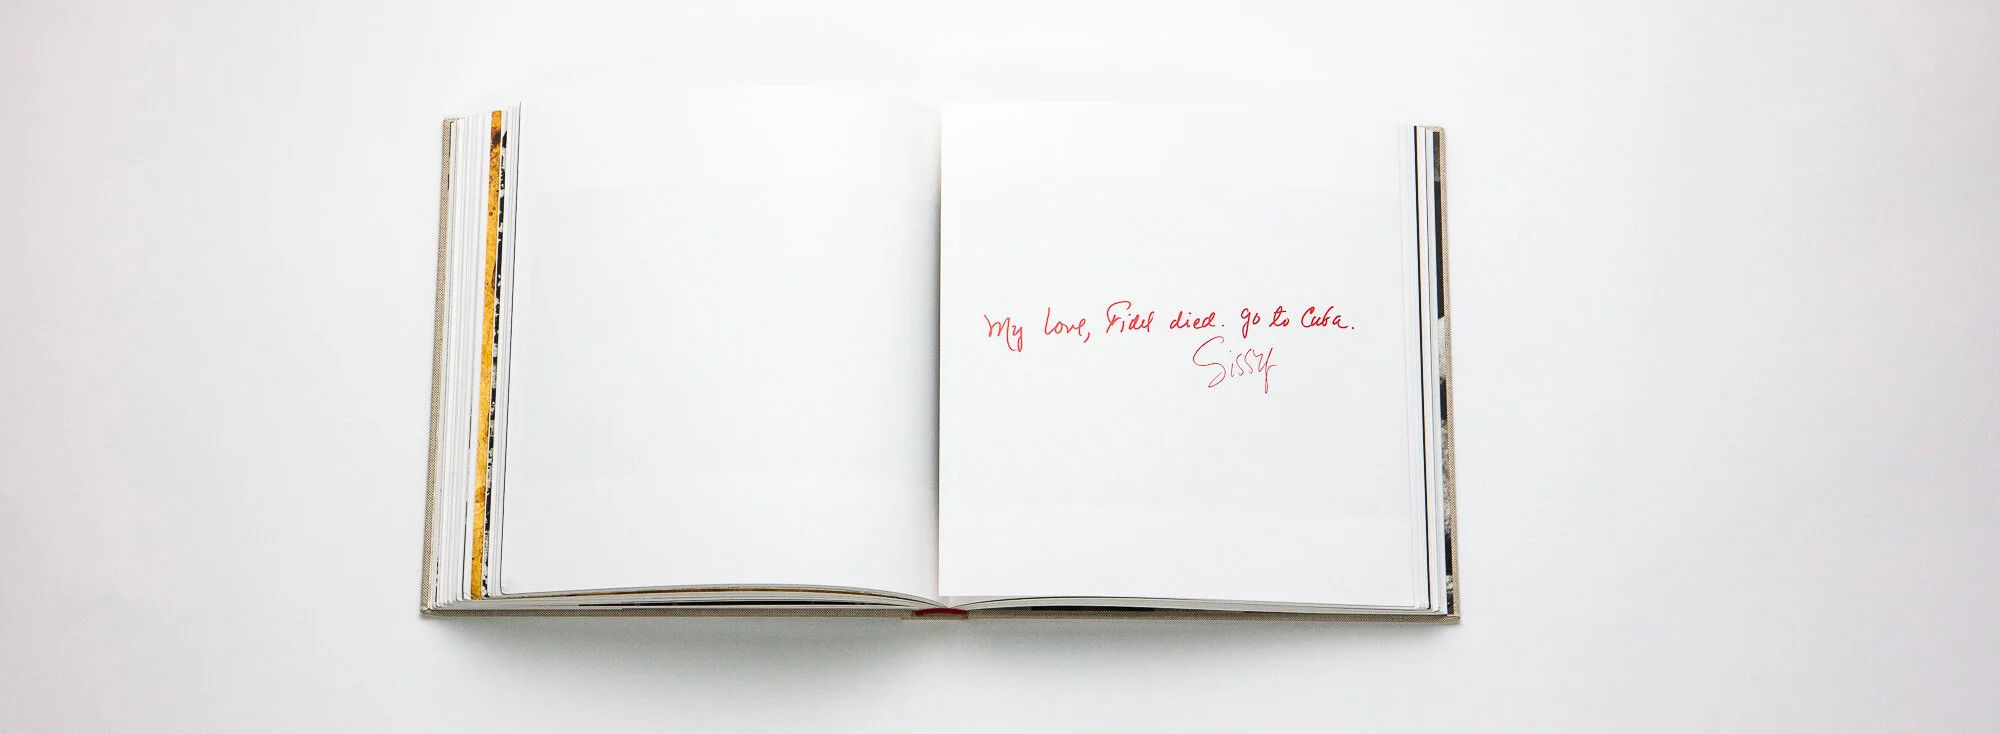 My love, Fidel died. go to Cuba.
Sissy